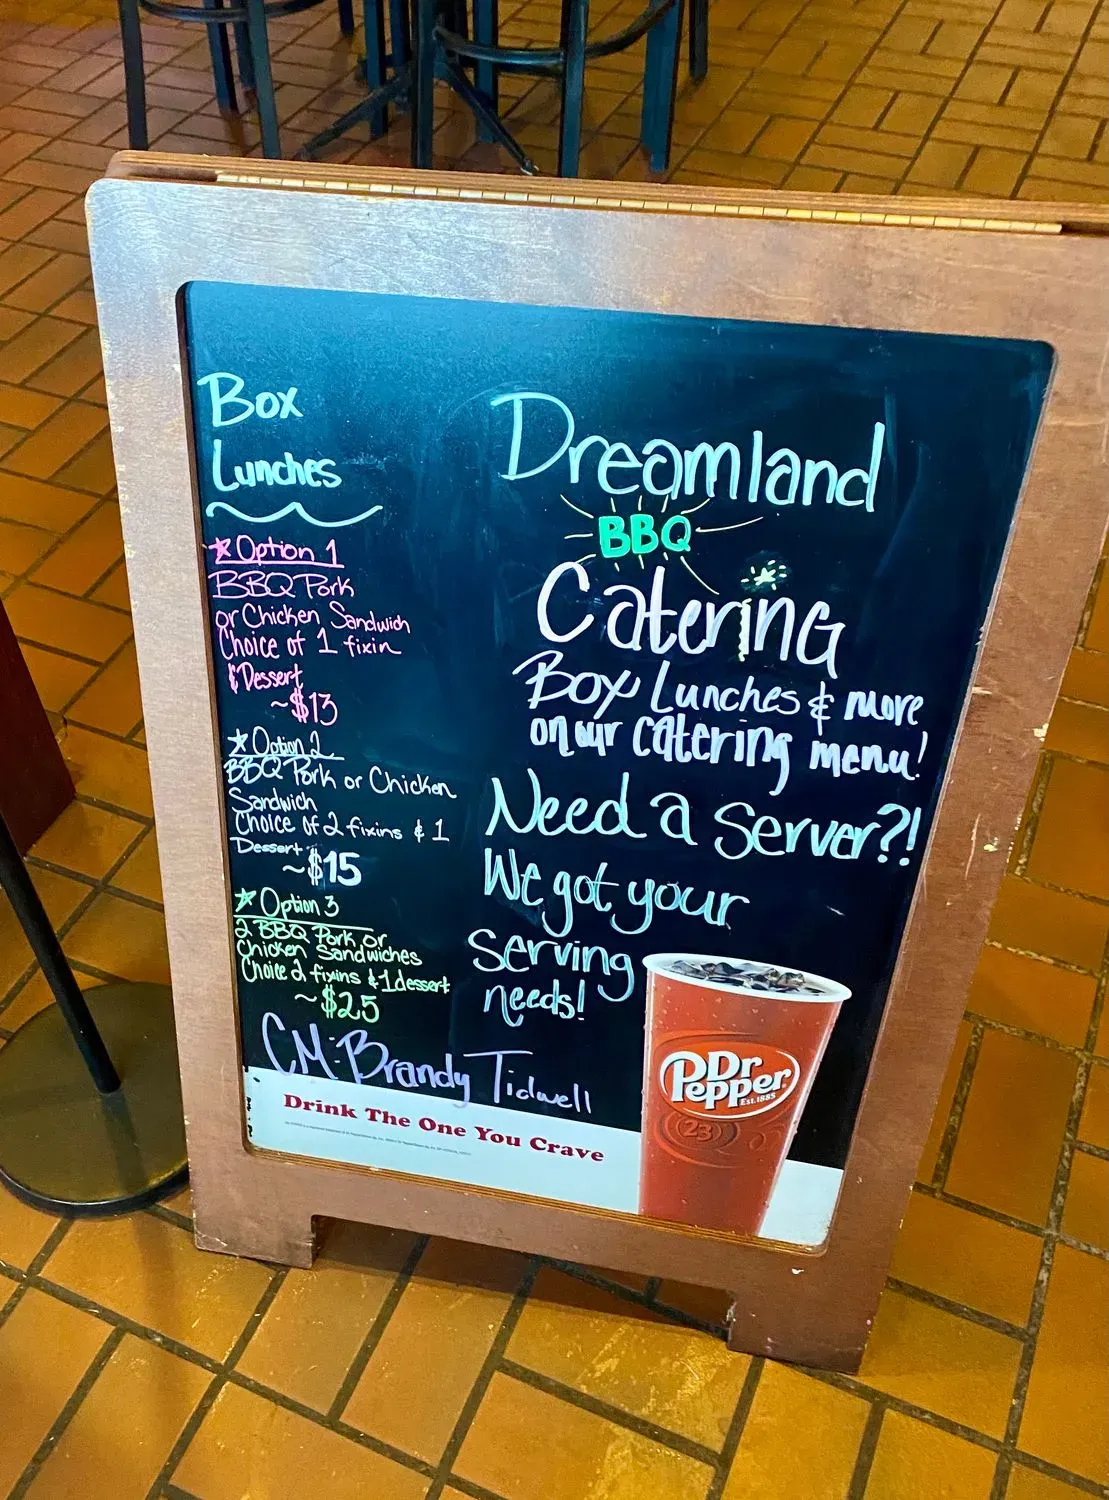 Box
Lunches
Option 1
BBQ Pork
or Chicken Sandwich
Choice of 1 fixin
& Dessert
~$13
Option 2
BBQ Pork or Chicken
Sandwich
Choice of 2 fixins & 1
Dessert
~$15
Option 3
2 BBQ Pork or
Chicken Sandwiches
Choice 2 fixins & 1 dessert
~$25
CM: Brandy Tidwell
Dreamland
BBQ
Catering
Box Lunches & more
on our catering menu!
Need a Server?!
We got your
serving
needs!
Drink The One You Crave
Dr
Pepper
Est. 1885
23